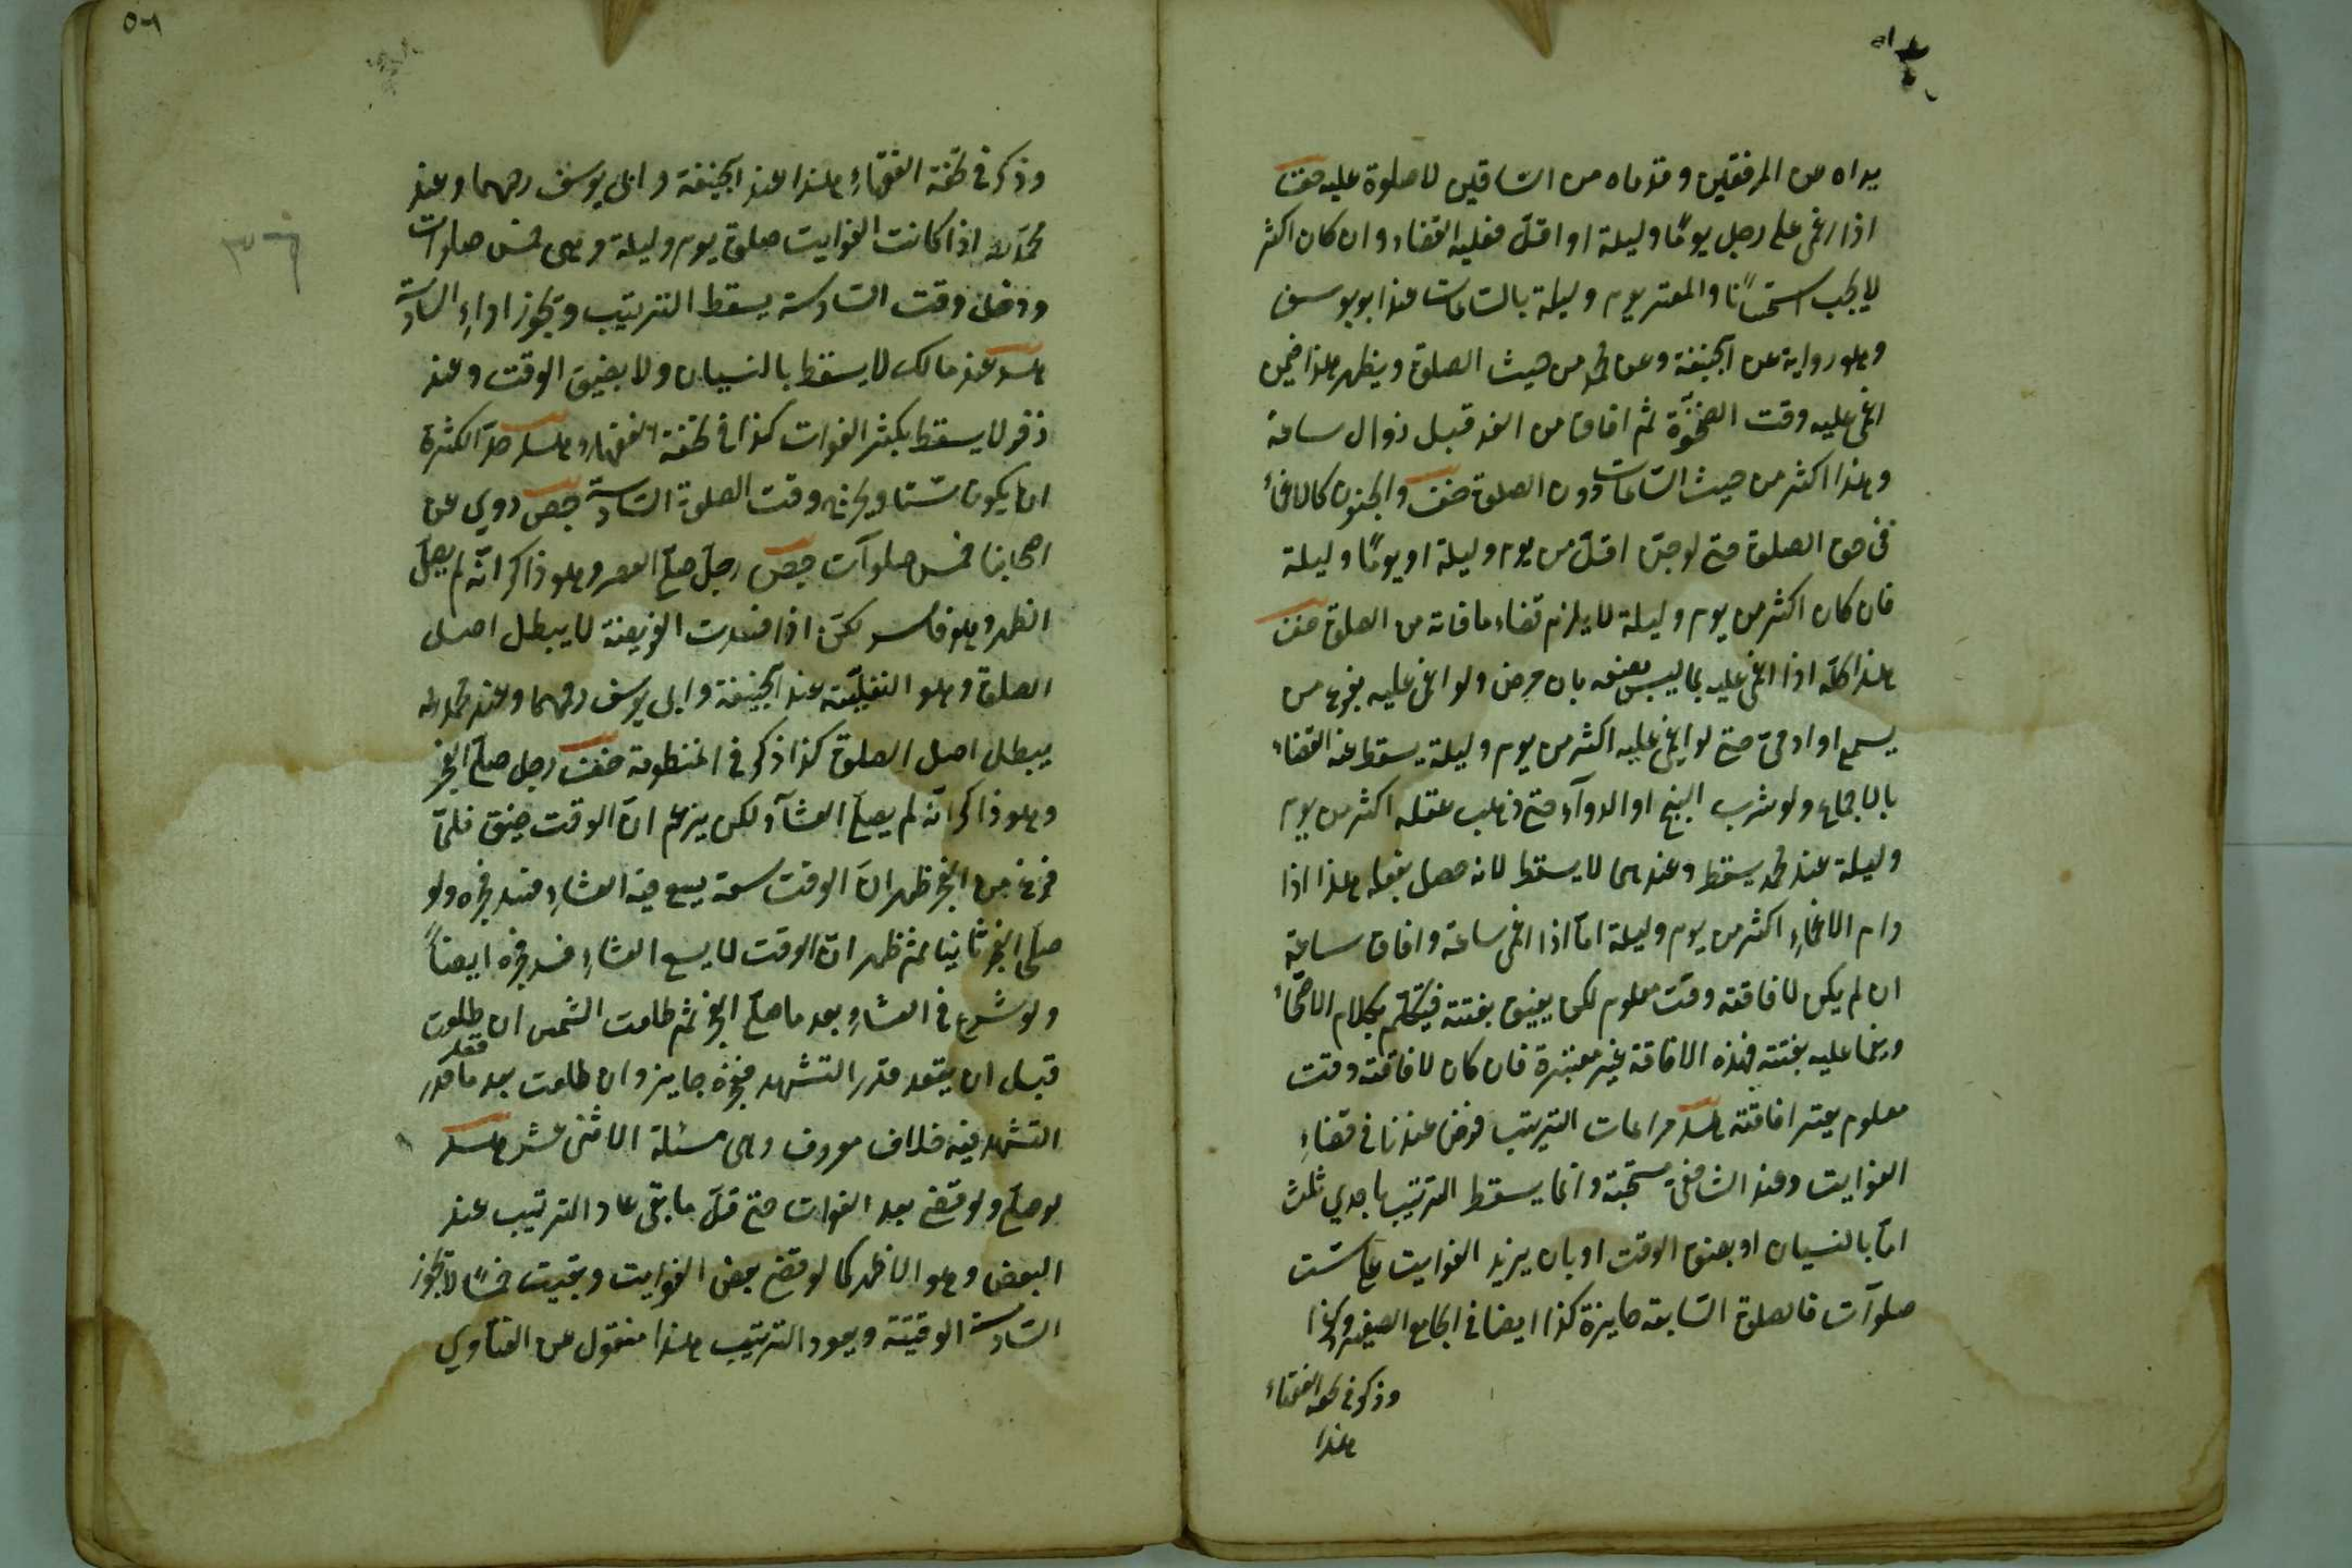 يداه من المرفقين وقدماه من الساقين لا صلوة عليه حقف
اذا اغمى على رجل يومًا وليلة او اقلّ فعليه القضاء وان كان اكثر
لا يجب استحسانًا والمعتبر يوم وليلة بالساعات عند ابو يوسف
وهو رواية عن ابحنيفة وعن محمد من حيث الصلوة ويظهر هذا فيمن
اغمى عليه وقت الضحوة ثم افاق من الغد قبل زوال ساعة
وهذا اكثر من حيث الساعات دون الصلوة حقف والجنون كالاغماء
فى حق الصلوة حتى لو جنّ اقلّ من يوم وليلة او يومًا وليلة
فان كان اكثر من يوم وليلة لا يلزم قضاء ما فاته من الصلوة حقف
هذا كلّه اذا اغمى عليه بما ليس بصنعه بان مرض ولو اغمى عليه بفزع من
سبع او ادمىّ حتى لو اغمى عليه اكثر من يوم وليلة يسقط عنه القضاء
بالاجماع ولو شرب البنج او الدوآء حتى ذهب عقله اكثر من يوم
وليلة عند محمد يسقط وعندهما لا يسقط لانه حصل بفعله هذا اذا
دام الاغماءِ اكثر من يوم وليلة امّا اذا اغمى ساعة وافاق ساعة
ان لم يكن لافاقته وقت معلوم لكن يفيق بغتة فيتكلّم بكلام الاصحّاء
ويغما عليه بغتة فهذه الافاقة غير معتبرة فان كان لافاقته وقت
معلوم يعتبر افاقته هسد مراعات الترتيب فرض عندنا فى قضاءِ
الفوايت وعند الشافعىّ مستحبّة وانما يسقط الترتيب باحدي ثلث
امّا بالنسيان او بضيق الوقت او بان يزيد الفوايت على ستّ
صلوآت فالصلوة السّابعة جايزة كذا ايضا فى الجامع الصغير وكذا
وذكر فى تحفة الفقهاء
هذا
٥٦
٣٦
وذكر فى تحفة الفقهاءِ هذا عند ابحنيفة وابى يوسف رحمهما وعند
محمّد رحـ اذا كانت الفوايت صلوة يوم وليلة وهى خمس صلوات
ودخل وقت السّادسة يسقط الترتيب وتجوز اداءِ السّادسة
هسد عند مالك لا يسقط بالنسيان ولا بضيق الوقت وعند
زفر لا يسقط بكثر الفوات كذا فى تحفة الفقهاء هسد حدّ الكثرة
ان يكون ستّا ويخرج وقت الصلوة السّادسة جص روي عن
اصحابنا خمس صلوآت جص رجل صلّى العصر وهو ذاكر انّه لم يصلّ
الظهر وهو فاسد لكن اذا فسدت الفريضة لا يبطل اصل
الصلوة وهو النفليّة عند ابحنيفة وابى يوسف رحمهما وعند محمد رحـ
يبطل اصل الصلوة كذا ذكر فى المنظومة حقف رجل صلّى الفجر
وهو ذاكر انّه لم يصلّ العشآء لكن يزعم انّ الوقت ضيق فلمّا
فرغ من الفجر ظهر انّ الوقت سعة يسع فيه العشاءِ فسد فجره ولو
صلّى الفجر ثانيا ثم ظهر انّ الوقت لا يسع العشاءِ فسد فجره ايضاً
ولو شرع فى العشاءِ بعد ما صلّى الفجر ثم طلعت الشمس ان طلعت
قبل ان يقعد قدر التشهد فجره جايز وان طلعت بعد ما قعد قدر
التشهد فيه خلاف معروف وهى مسئلة الاثنى عشر هسد
لو صلّى ولو قضى بعد الفوات حتى قلّ ما بقى عاد الترتيب عند
البعض وهو الاظهر كما لو قضى بعض الفوايت وبقيت خمسًا لا تجوز
السّادسة الوقتيّة ويعود الترتيب هذا منقول عن الفتاوي